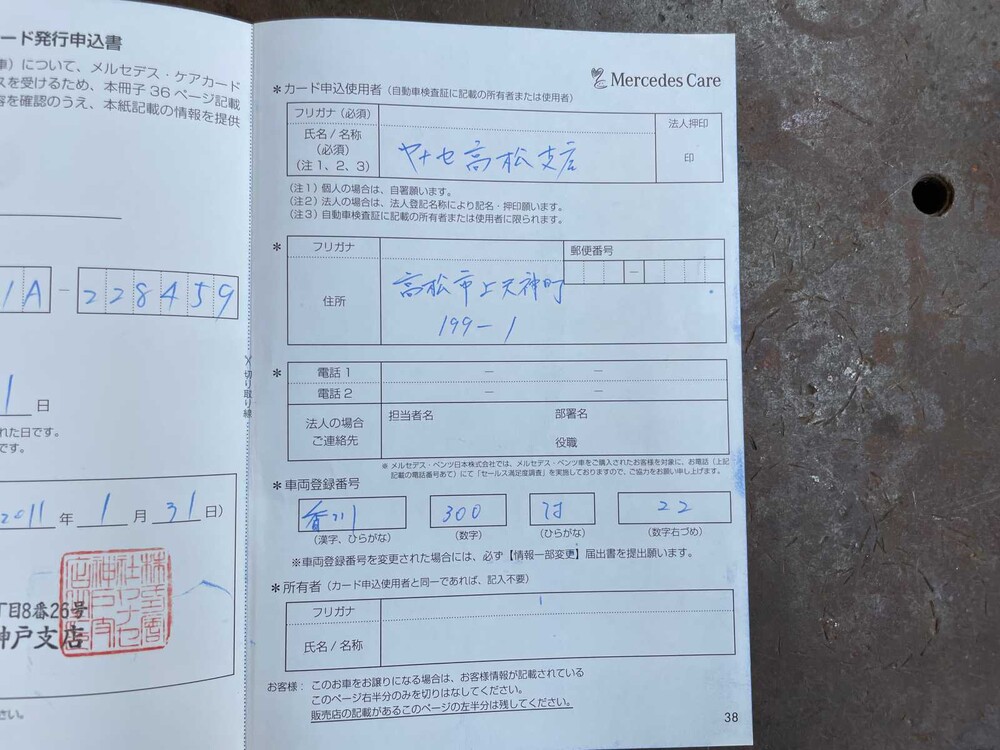 ード発行申込書
車）について、メルセデス・ケアカード
スを受けるため、本冊子 36 ページ記載
容を確認のうえ、本紙記載の情報を提供
1A - 228459
1 日
れた日です。
です。
2011 年 1 月 31 日)
丁目8番26号
神戸支店
さい。
切り取り線
Mercedes Care
＊カード申込使用者（自動車検査証に記載の所有者または使用者）
フリガナ（必須）
氏名／名称
（必須）
（注１、２、３）
ヤナセ高松支店
法人押印
印
（注１）個人の場合は、自署願います。
（注２）法人の場合は、法人登記名称により記名・押印願います。
（注３）自動車検査証に記載の所有者または使用者に限られます。
＊ フリガナ
郵便番号
－
住所
高松市上天神町
199-1
＊ 電話１ － －
電話２ － －
法人の場合
ご連絡先
担当者名 部署名
役職
※ メルセデス・ベンツ日本株式会社では、メルセデス・ベンツ車をご購入されたお客様を対象に、お電話（上記
記載の電話番号あて）にて「セールス満足度調査」を実施しておりますので、ご協力をお願い申し上げます。
＊車両登録番号
香川 300 は 22
（漢字、ひらがな） （数字） （ひらがな） （数字右づめ）
※車両登録番号を変更された場合には、必ず【情報一部変更】届出書を提出願います。
＊所有者（カード申込使用者と同一であれば、記入不要）
フリガナ
氏名／名称
お客様： このお車をお譲りになる場合は、お客様情報が記載されている
このページ右半分のみを切りはなしてください。
販売店の記載があるこのページの左半分は残してください。
38